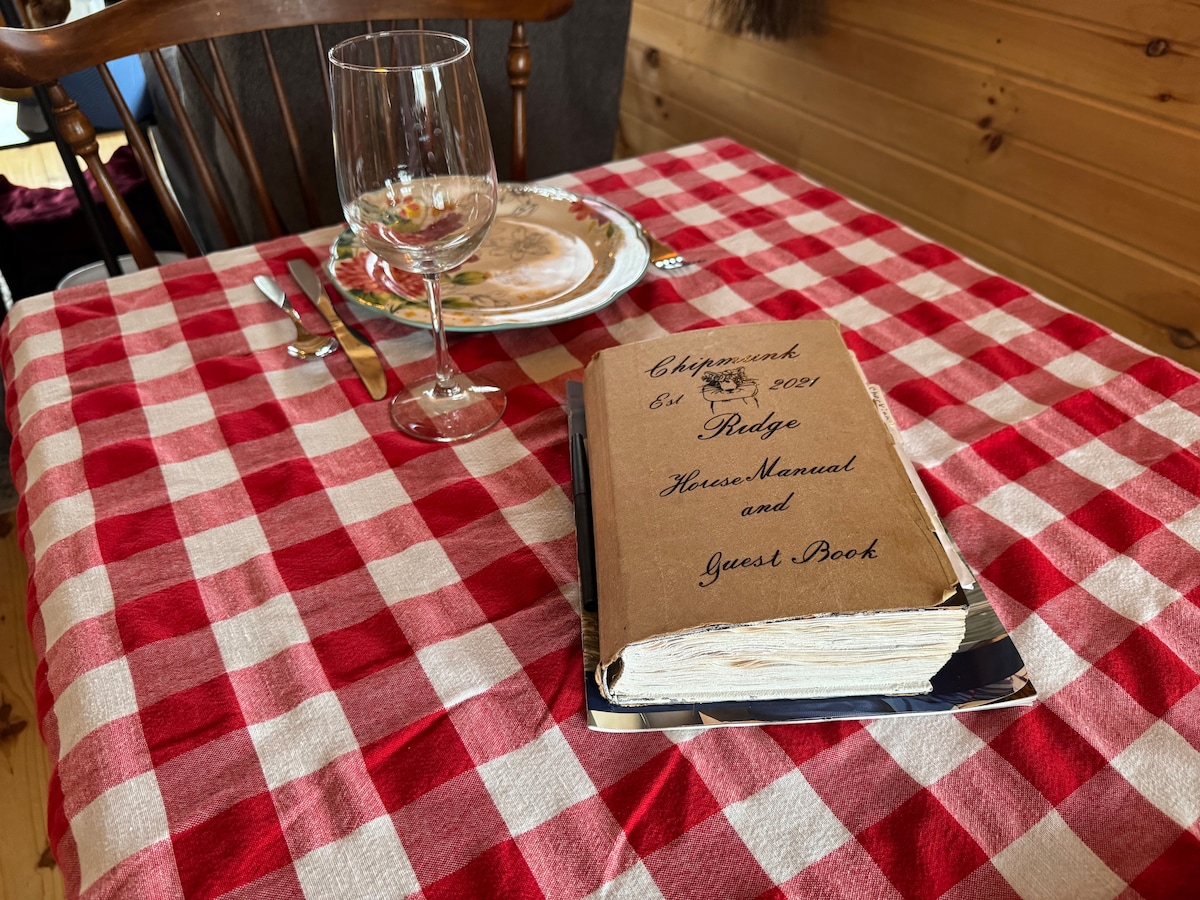 Chipmunk
Est 2021
Ridge
House Manual
and
Guest Book